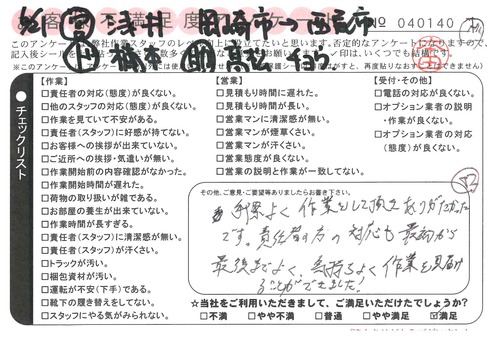 お客様不満足度アンケート No 040140
8/21 ㊇ 浅井 岡崎市→西尾市
橋本
このアンケートは弊社作業スタッフのレベル向上に役立てたいと思います。否定的なアンケートとなりますので、
【作業】
□責任者の対応(態度)が良くない。
□他のスタッフの対応(態度)が良くない。
□作業を見ていて不安がある。
□責任者(スタッフ)に好感が持てない。
□お客様への挨拶が出来ていない。
□ご近所への挨拶・気遣いが無い。
□作業開始前の内容確認がなかった。
□作業開始時間が遅れた。
□荷物の取り扱いが雑である。
□お部屋の養生が出来ていない。
□作業時間が長すぎる。
□責任者(スタッフ)に清潔感が無い。
□責任者(スタッフ)が汗くさい。
□トラックが汚い。
□梱包資材が汚い。
□運転が不安(下手)である。
□靴下の履き替えをしてない。
□スタッフにやる気がみられない。
【営業】
□見積もり時間に遅れた。
□見積もり時間が長い。
□営業マンに清潔感が無い。
□営業マンが煙草くさい。
□営業マンが汗くさい。
□営業態度が良くない。
□営業の説明と作業が一致してない。
【受付・その他】
□電話の対応が良くない。
□オプション業者の説明
・作業が良くない。
□オプション業者の対応
(態度)が良くない。
チェックリスト
その他、ご意見・ご要望等ありましたらお書き下さい。
効率よく作業をして頂きありがたかった
です。責任者の方の対応も最初から
最後までよく、気持ちよく作業を見届け
ることができました!
☆当社をご利用いただきまして、ご満足いただけたでしょうか?
□不満 □やや不満 □普通 □やや満足 ☑満足